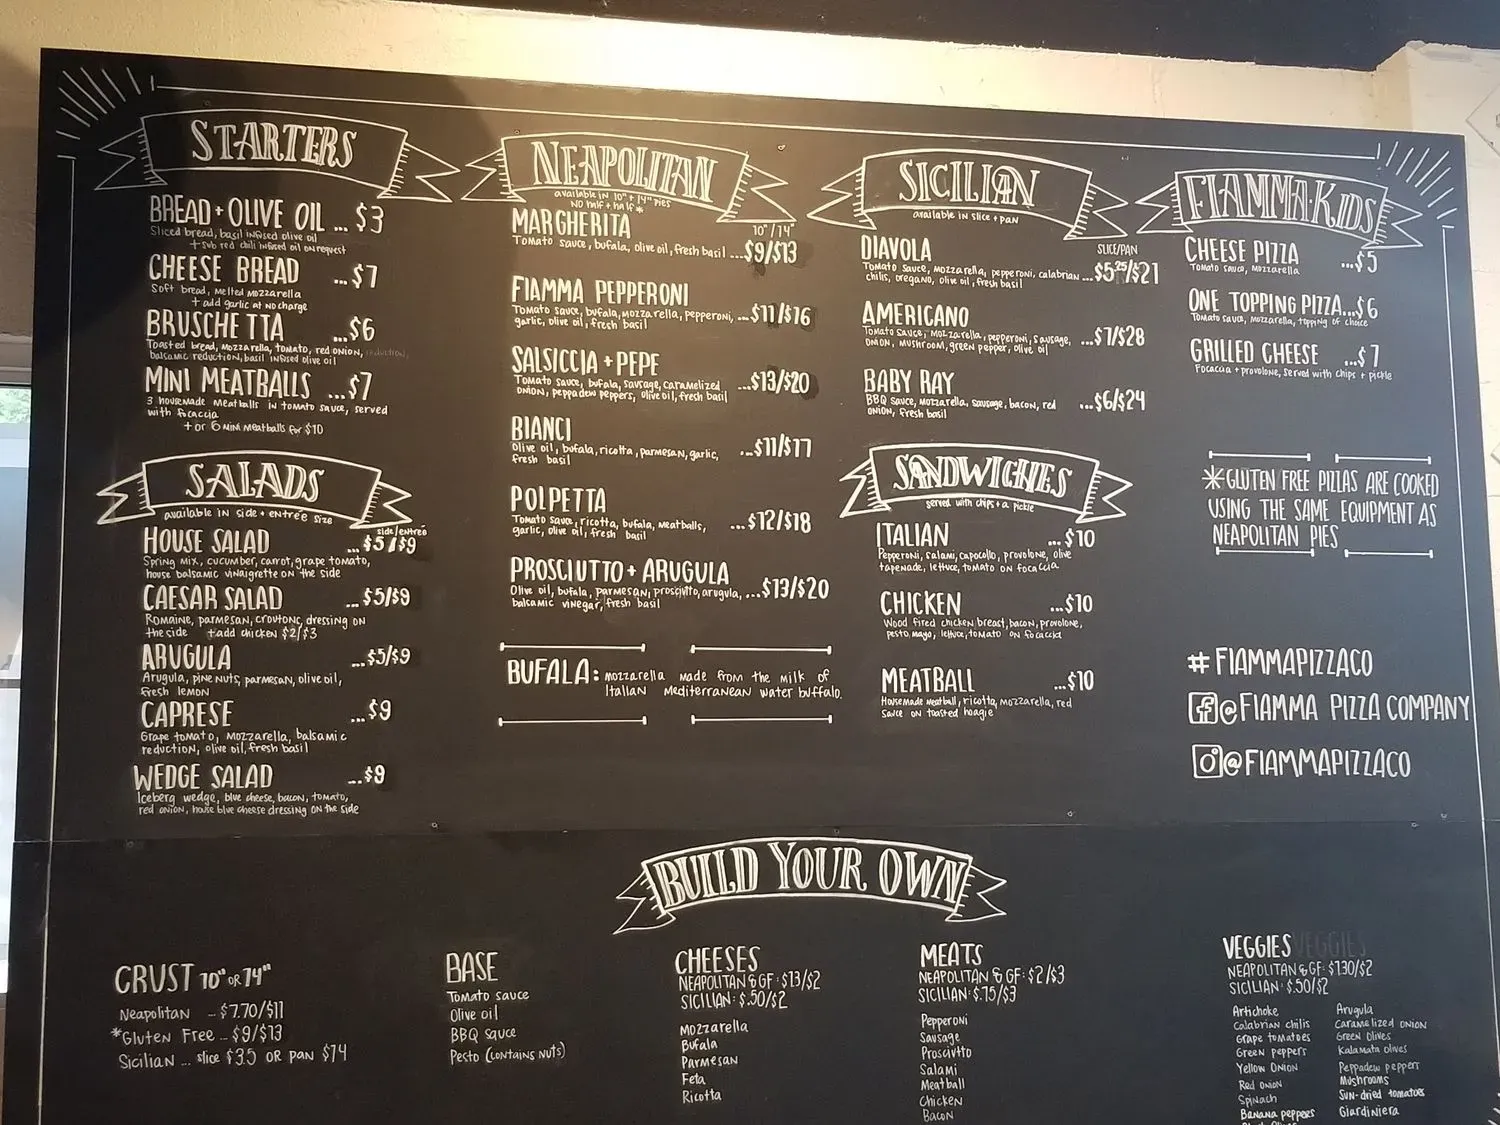 STARTERS
BREAD + OLIVE OIL ... $3
Sliced bread, basil infused olive oil
+ sub red chili infused oil on request
CHEESE BREAD ... $7
Soft bread, melted mozzarella
+ add garlic at no charge
BRUSCHETTA ... $6
Toasted bread, mozzarella, tomato, red onion, reduction,
balsamic reduction, basil infused olive oil
MINI MEATBALLS ... $7
3 housemade meatballs in tomato sauce, served
with focaccia
+ or 6 mini meatballs for $10
SALADS
available in side + entrée size
side/entrée
HOUSE SALAD ... $5/$9
Spring mix, cucumber, carrot, grape tomato,
house balsamic vinaigrette on the side
CAESAR SALAD ... $5/$9
Romaine, parmesan, croutons, dressing on
the side + add chicken $2/$3
ARUGULA ... $5/$9
Arugula, pine nuts, parmesan, olive oil,
fresh lemon
CAPRESE ... $9
Grape tomato, mozzarella, balsamic
reduction, olive oil, fresh basil
WEDGE SALAD ... $9
Iceberg wedge, blue cheese, bacon, tomato,
red onion, house blue cheese dressing on the side
NEAPOLITAN
available in 10" + 14" pies
NO half + half *
10"/14"
MARGHERITA
Tomato sauce, bufala, olive oil, fresh basil ... $9/$13
FIAMMA PEPPERONI
Tomato sauce, bufala, mozzarella, pepperoni, ... $11/$16
garlic, olive oil, fresh basil
SALSICCIA + PEPE
Tomato sauce, bufala, sausage, caramelized ... $13/$20
onion, peppadew peppers, olive oil, fresh basil
BIANCI
Olive oil, bufala, ricotta, parmesan, garlic, ... $11/$17
fresh basil
POLPETTA
Tomato sauce, ricotta, bufala, meatballs, ... $12/$18
garlic, olive oil, fresh basil
PROSCIUTTO + ARUGULA
Olive oil, bufala, parmesan, prosciutto, arugula, ... $13/$20
balsamic vinegar, fresh basil
BUFALA: mozzarella made from the milk of
Italian Mediterranean water buffalo.
SICILIAN
available in slice + pan
SLICE/PAN
DIAVOLA
Tomato sauce, mozzarella, pepperoni, calabrian ... $5.25/$21
chilis, oregano, olive oil, fresh basil
AMERICANO
Tomato sauce, mozzarella, pepperoni, sausage, ... $7/$28
onion, mushroom, green pepper, olive oil
BABY RAY
BBQ sauce, mozzarella, sausage, bacon, red ... $6/$24
onion, fresh basil
SANDWICHES
served with chips + a pickle
ITALIAN ... $10
Pepperoni, salami, capocollo, provolone, olive
tapenade, lettuce, tomato on focaccia
CHICKEN ... $10
Wood fired chicken breast, bacon, provolone,
pesto mayo, lettuce, tomato on focaccia
MEATBALL ... $10
Housemade meatball, ricotta, mozzarella, red
sauce on toasted hoagie
FIAMMA·KIDS
CHEESE PIZZA ... $5
Tomato sauce, mozzarella
ONE TOPPING PIZZA ... $6
Tomato sauce, mozzarella, topping of choice
GRILLED CHEESE ... $7
Focaccia + provolone, served with chips + pickle
*GLUTEN FREE PIZZAS ARE COOKED
USING THE SAME EQUIPMENT AS
NEAPOLITAN PIES
# FIAMMAPIZZACO
f @FIAMMA PIZZA COMPANY
@FIAMMAPIZZACO
BUILD YOUR OWN
CRUST 10" OR 14"
Neapolitan ... $7.70/$11
*Gluten Free ... $9/$13
Sicilian ... slice $3.5 OR PAN $14
BASE
Tomato sauce
Olive oil
BBQ sauce
Pesto (contains nuts)
CHEESES
NEAPOLITAN & GF: $1.3/$2
SICILIAN: $.50/$2
Mozzarella
Bufala
Parmesan
Feta
Ricotta
MEATS
NEAPOLITAN & GF: $2/$3
SICILIAN: $.75/$3
Pepperoni
Sausage
Prosciutto
Salami
Meatball
Chicken
Bacon
VEGGIES VEGGIES
NEAPOLITAN & GF: $1.30/$2
SICILIAN: $.50/$2
Artichoke
Calabrian chilis
Grape tomatoes
Green peppers
Yellow onion
Red onion
Spinach
Banana peppers
Arugula
Caramelized onion
Green Olives
Kalamata olives
Peppadew peppers
Mushrooms
Sun-dried tomatoes
Giardiniera